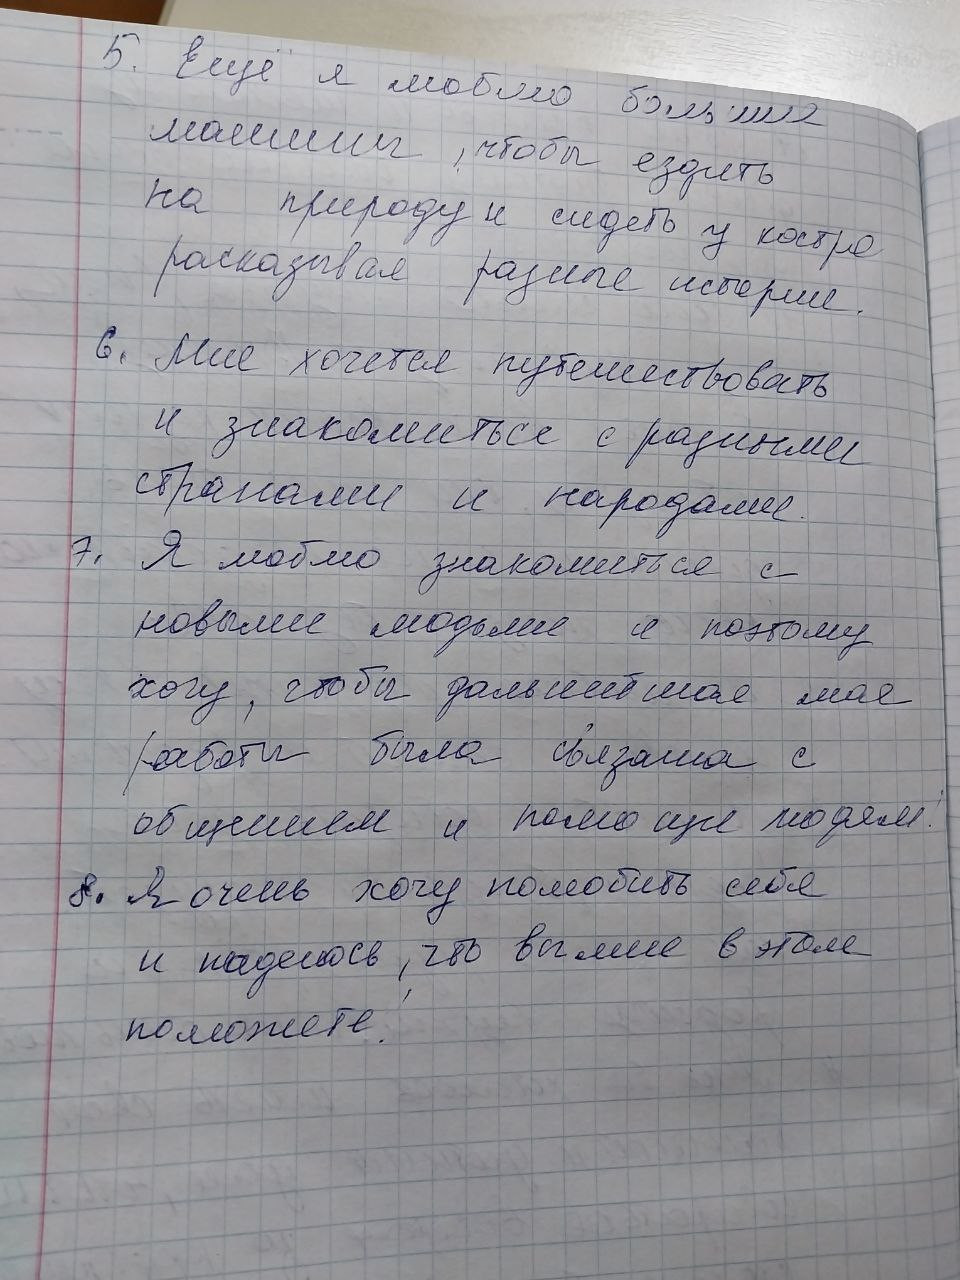 5. Ещё я люблю большие
машины, чтобы ездить
на природу и сидеть у костра
расказывая разные истории.
6. Мне хочется путешествовать
и знакомиться с разными
странами и народами.
7. Я люблю знакомиться с
новыми людьми и поэтому
хочу, чтобы дальнейшая моя
работы была связана с
общением и помощи людям!
8. Я очень хочу полюбить себя
и надеюсь, что вы мне в этом
поможете!